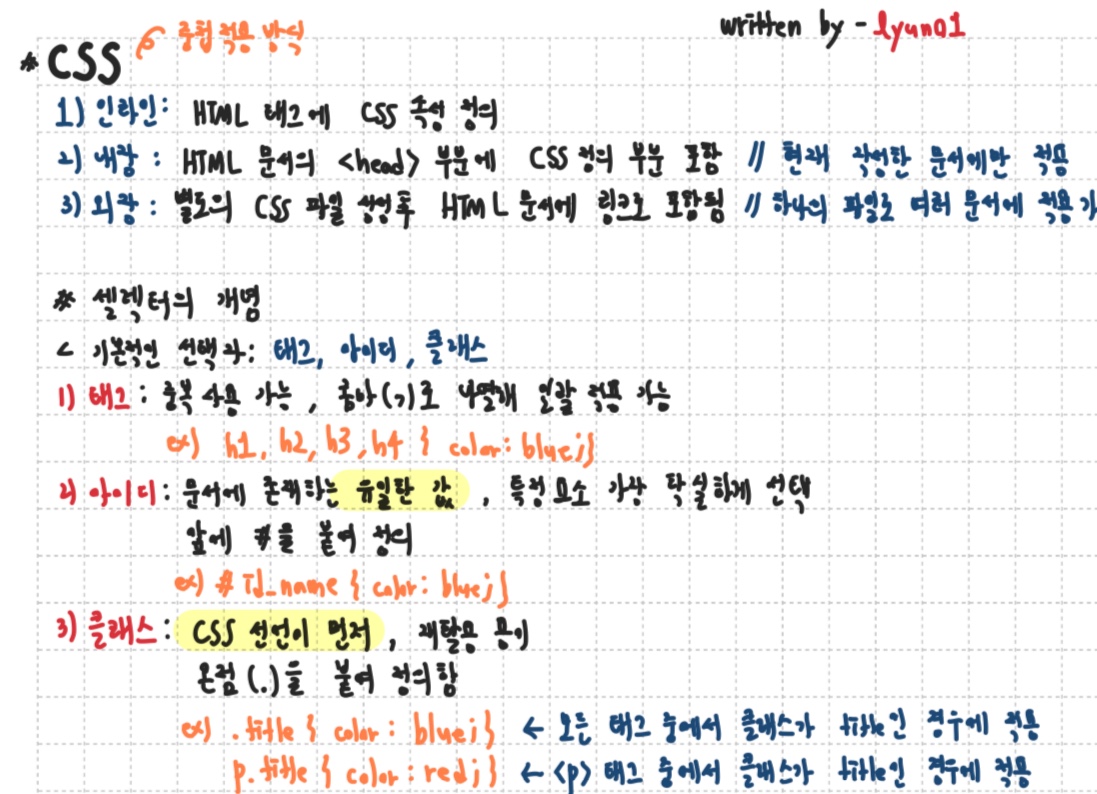 written by - lyun01
* CSS 중첩 적용 방식
1) 인라인: HTML 태그에 CSS 속성 정의
2) 내장 : HTML 문서의 <head> 부분에 CSS 정의 부분 포함 // 현재 작성한 문서에만 적용
3) 외장 : 별도의 CSS 파일 생성 후 HTML 문서에 링크로 포함됨 // 하나의 파일로 여러 문서에 적용가
* 셀렉터의 개념
< 기본적인 선택자: 태그, 아이디, 클래스
1) 태그: 중복 사용 가능, 콤마(,)로 나열해 일괄 적용 가능
ex) h1, h2, h3, h4 { color: blue;}
2) 아이디: 문서에 존재하는 유일한 값, 특정 요소 가장 확실하게 선택
앞에 #을 붙여 정의
ex) # Id_name { color: blue;}
3) 클래스: CSS 선언이 먼저, 재활용 용이
온점(.)을 붙여 정의함
ex) .title { color : blue;} ← 모든 태그 중에서 클래스가 title인 경우에 적용
p.title { color : red;} ← <p> 태그 중에서 클래스가 title인 경우에 적용